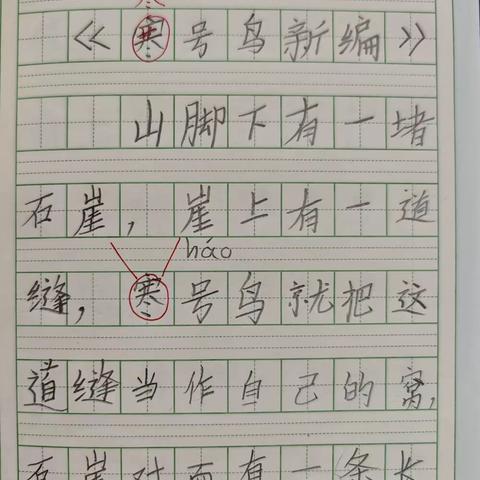 寒
《寒号鸟新编》
山脚下有一堵
石崖，崖上有一道
háo
缝，寒号鸟就把这
道缝当作自己的窝，
石崖对面有一条长